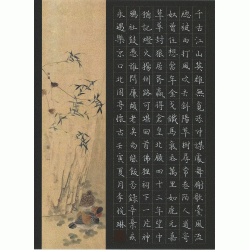 千古江山英雄無覓孫仲謀處舞榭歌臺風流
總被雨打風吹去斜陽草樹尋常巷陌人道寄
奴曾住想當年金戈鐵馬氣吞萬里如虎元嘉
草草封狼居胥贏得倉皇北顧四十三年望中
猶記燈火揚州路可堪回首佛狸祠下一片神
鴉社鼓憑誰問廉頗老矣尚能飯否錄辛棄疾
永遇樂京口北固亭懷古壬寅夏月李